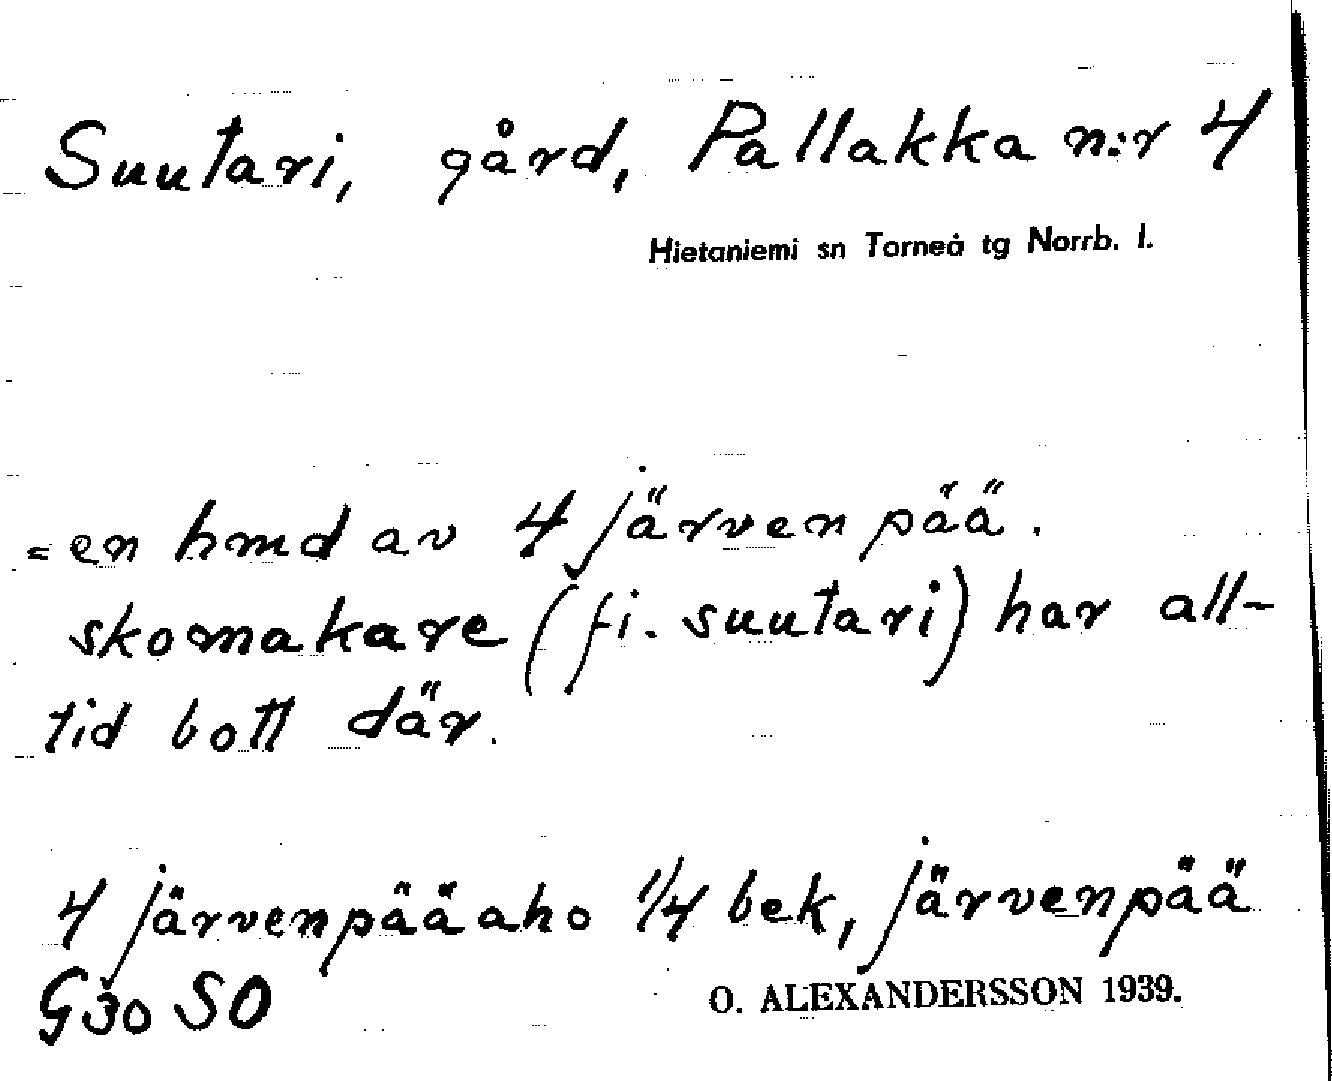 Suutari, gård, Pallakka n:r 4
Hietaniemi sn Torneå tg Norrb. l.
= en hmd av 4 järvenpää.
skomakare (fi. suutari) har all-
tid bott där.
4 järvenpääaho 1/4 bek, järvenpää
G30 SO
O. ALEXANDERSSON 1939.